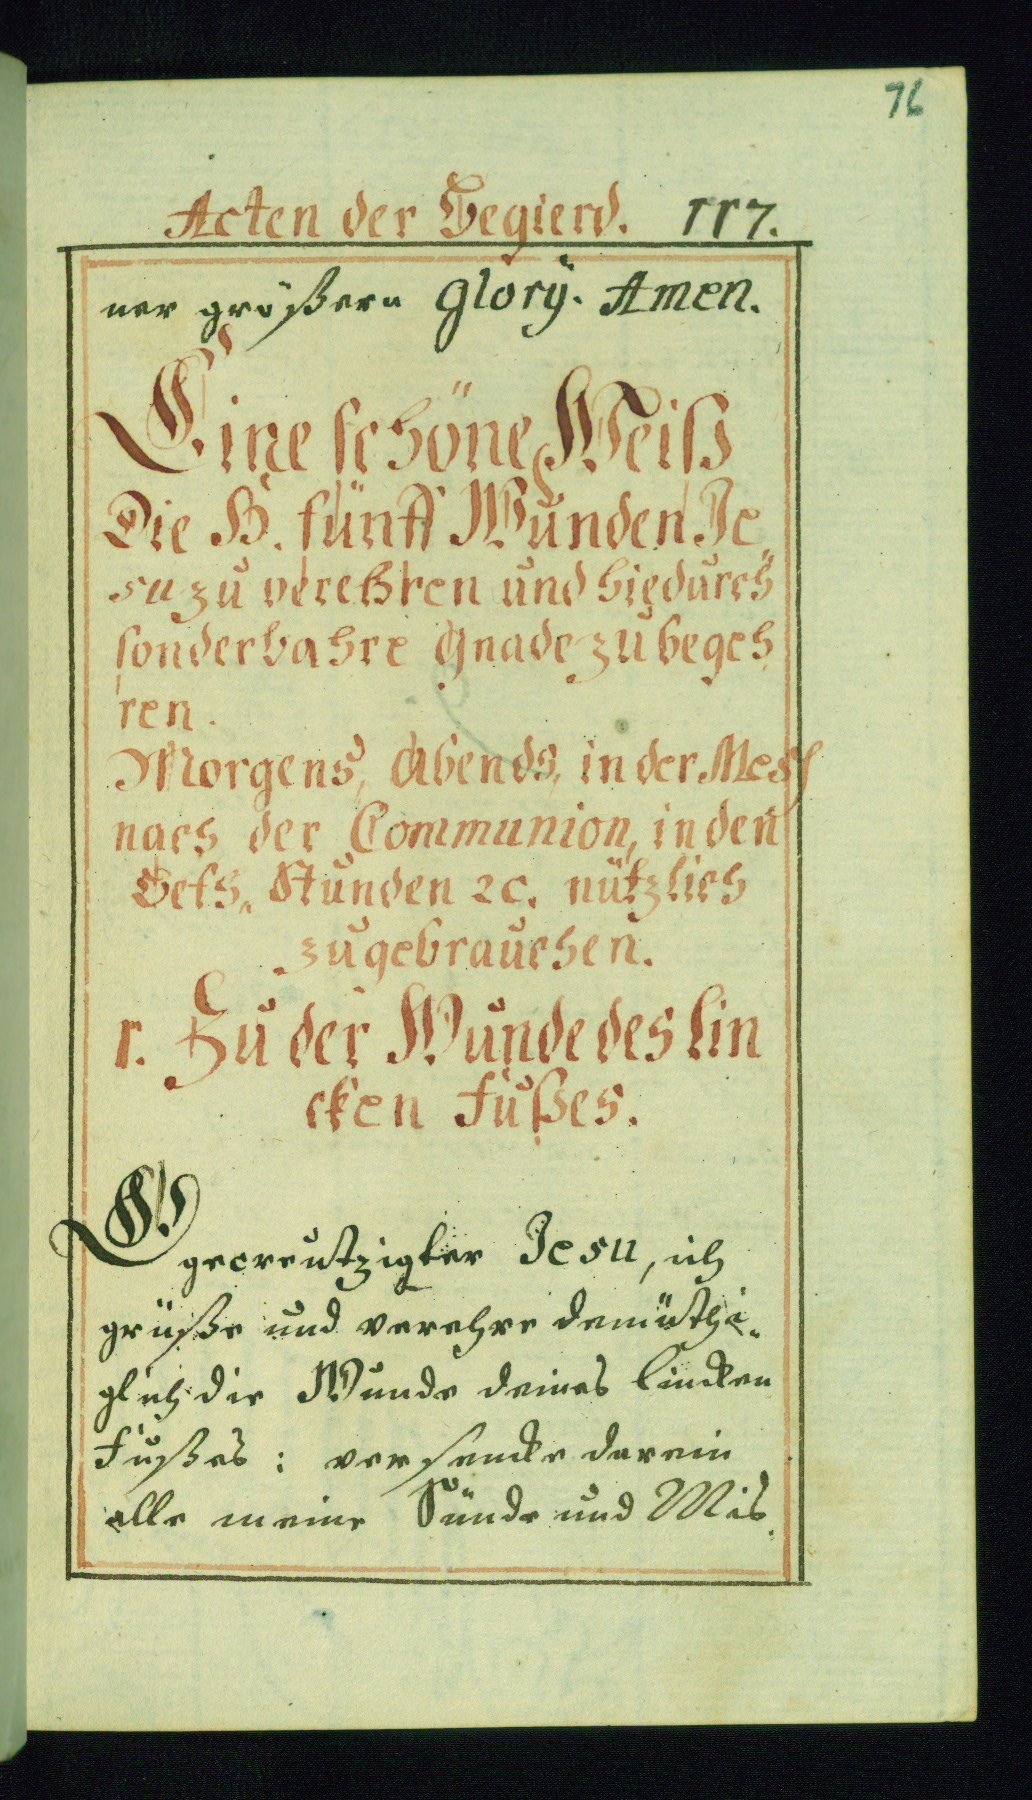 76
Acten der Begierd. 117.
ner größern Glorÿ. Amen.
Eine schöne Weiß
Die H. fünff Wunden Je
su zu verehren und hiedurch
sonderbahre Gnade zu begeh
ren.
Morgens, Abends, in der Mess
nach der Communion, in den
Beth, Stunden ꝛc. nützlich
zugebrauchen.
1. Zu der Wunde des lin
cken Fußes.
O
gecreutzigter Jesu, ich
grüße und verehre demüthi,
glich die Wunde deines lincken
Fußes: versencke darein
alle meine Sünde und Mis,